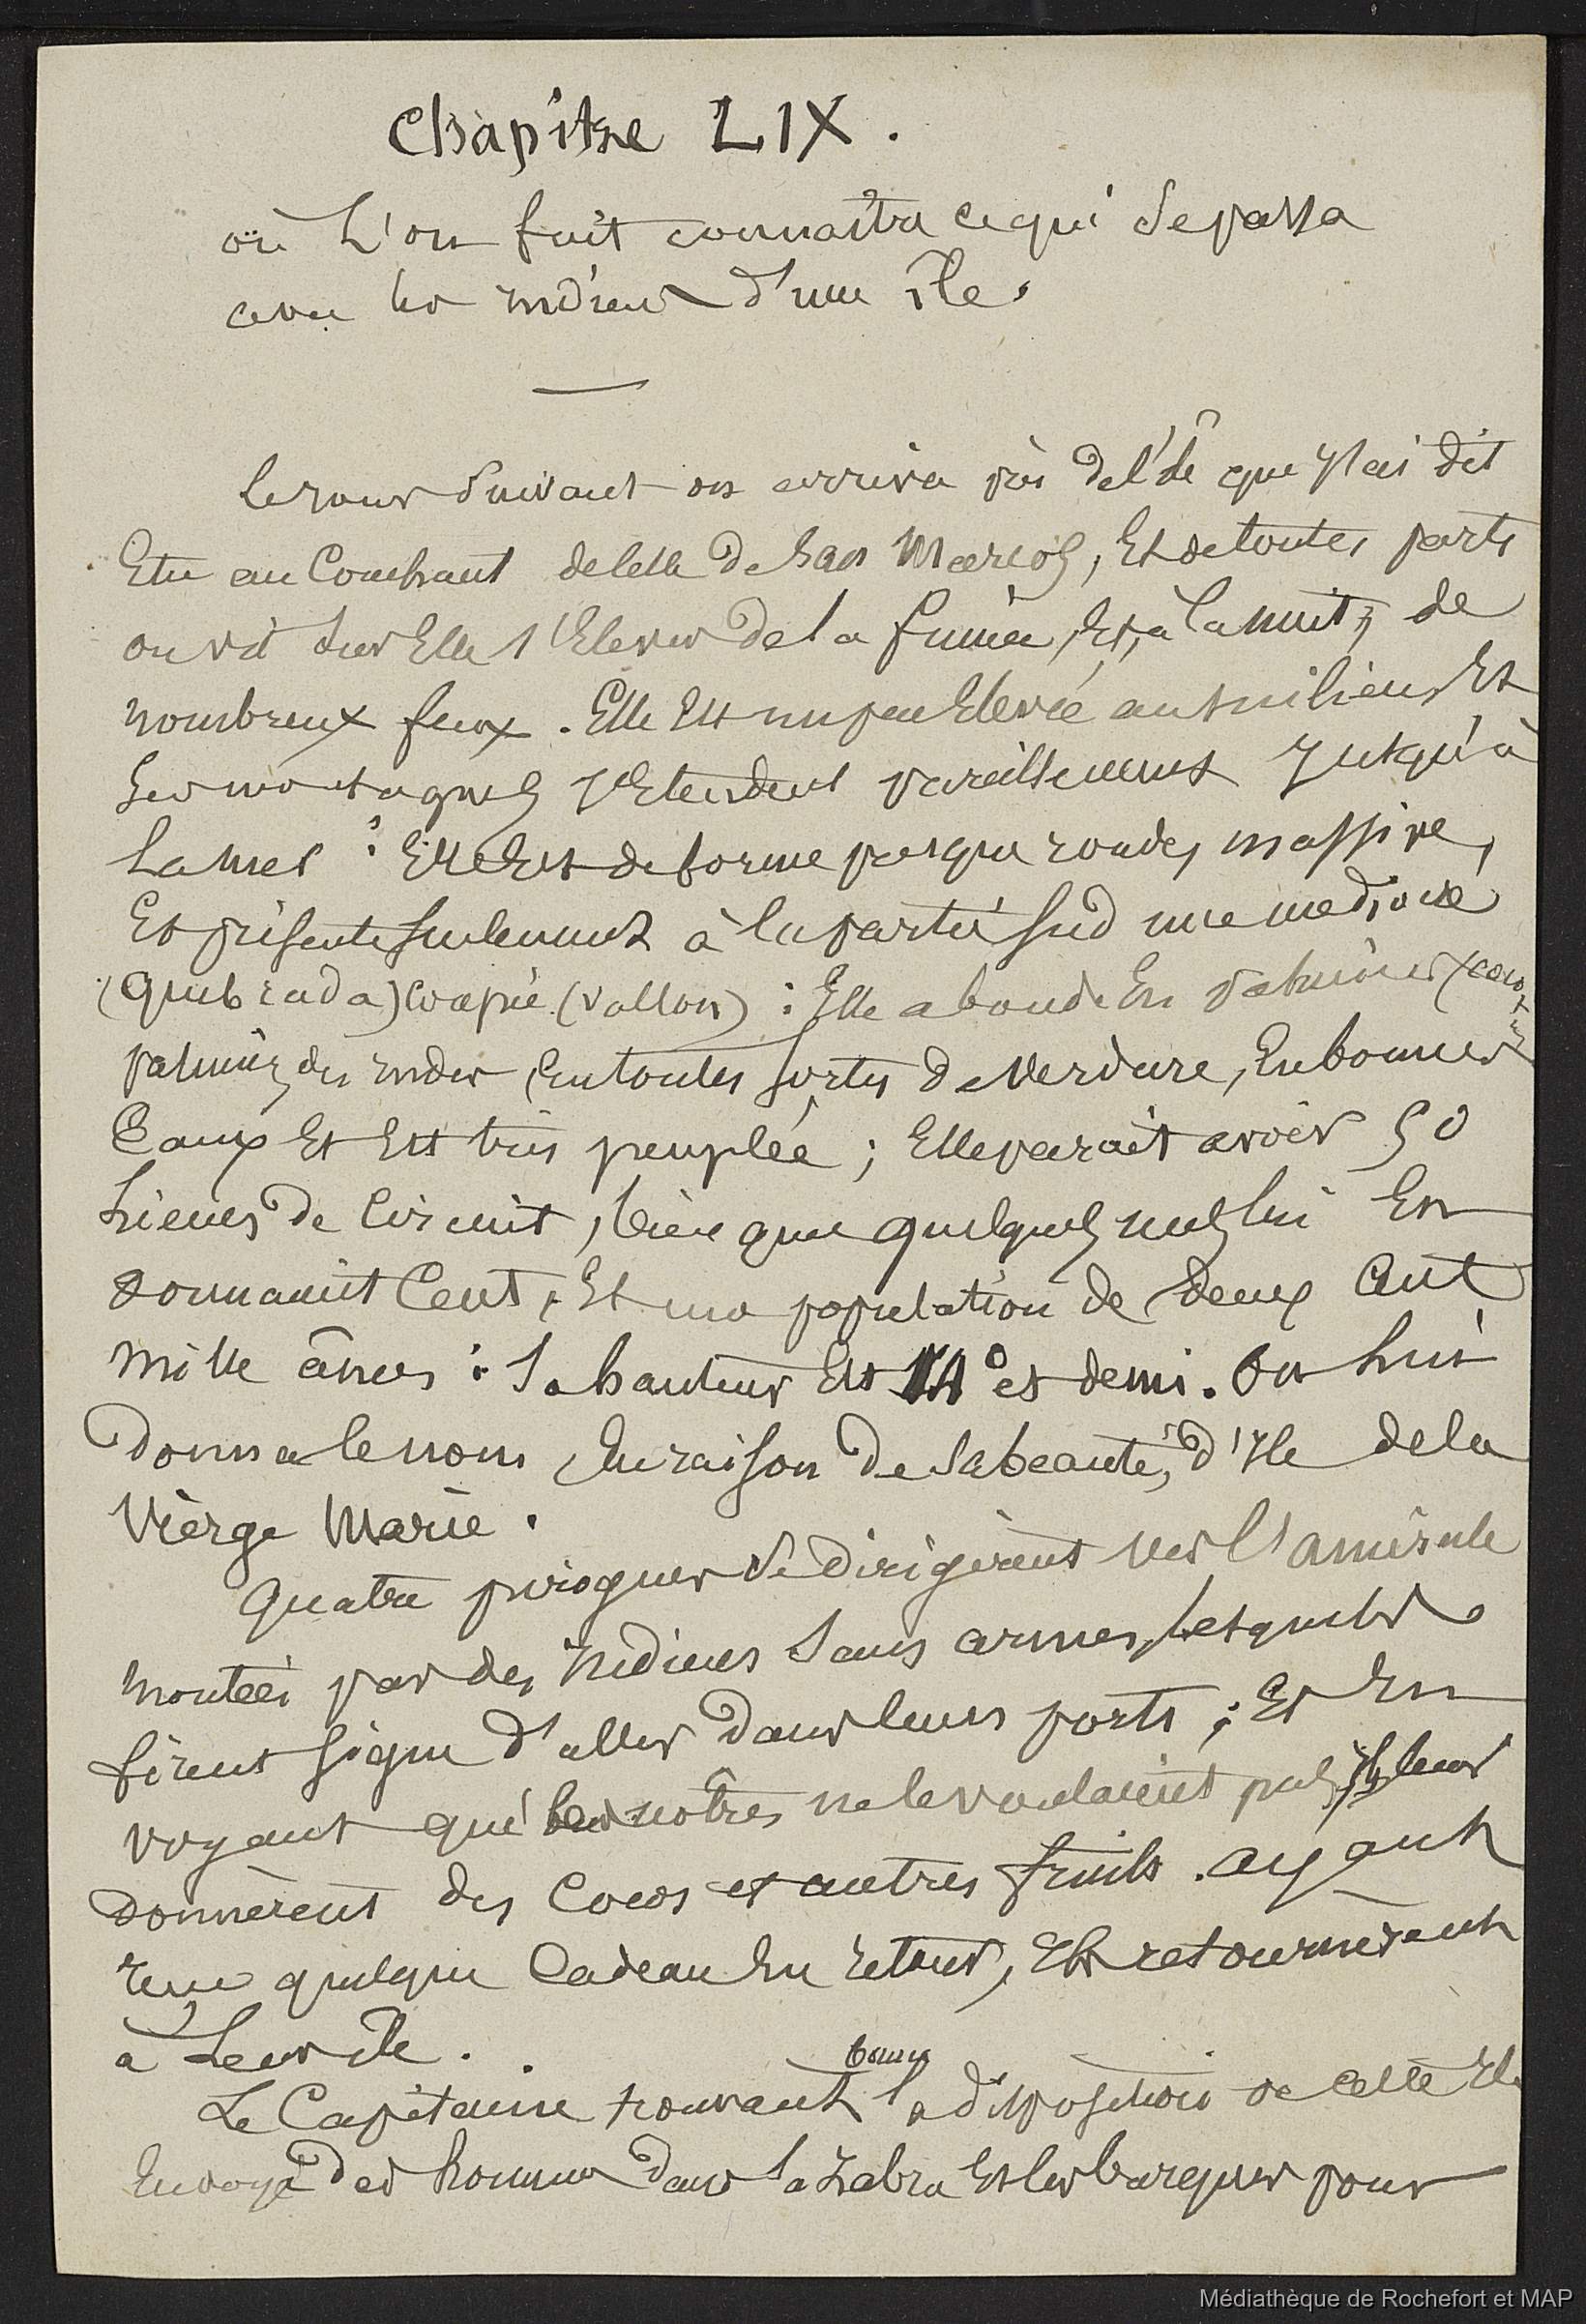 Chapitre LIX.
où L'on fait connaître ce qui se passa
avec les indiens d'une île.
Le jour suivant on arriva près de l'île que j'ai dit
Etre au Couchant de celle de San Marcos, Et de toutes parts
on vit sur Elle s'Elever de la fumée, Et, à la nuit, de
nombreux feux. Elle Est un peu Elevée au milieu, Et
Ses montagnes s'Etendent pareillement jusqu'à
La mer : Elle Est de forme presque ronde, massive,
Et présente seulement à la partie Sud une mediocre
(quebrada) coupée (vallon) : Elle abonde En palmiers
palmiers des indes, En toutes sortes de verdure, En bonnes
Eaux Et Est très peuplée ; Elle parait avoir 50
Lieues de Circuit, bien que quelques uns lui En
donnaient Cent, Et une population de deux Cent
mille âmes : Sa hauteur Est 14° et demi. On Lui
donna le nom, En raison de sa beauté, d'Ile de la
Vierge Marie.
Quatre pirogues se dirigèrent vers l'amirale
montées par des indiens Sans armes, Lesquels
firent signe d'aller dans leurs ports ; Et En
voyant que les notres ne le voulaient pas, ils leur
donnèrent des Cocos et autres fruits. Ayant
reçu quelque Cadeau En retour, Ils retournèrent
à Leur île.
bonne
Le Capitaine trouvant la disposition de cette Ile
Envoya des hommes dans la zabra Et les barques pour
Médiathèque de Rochefort et MAP